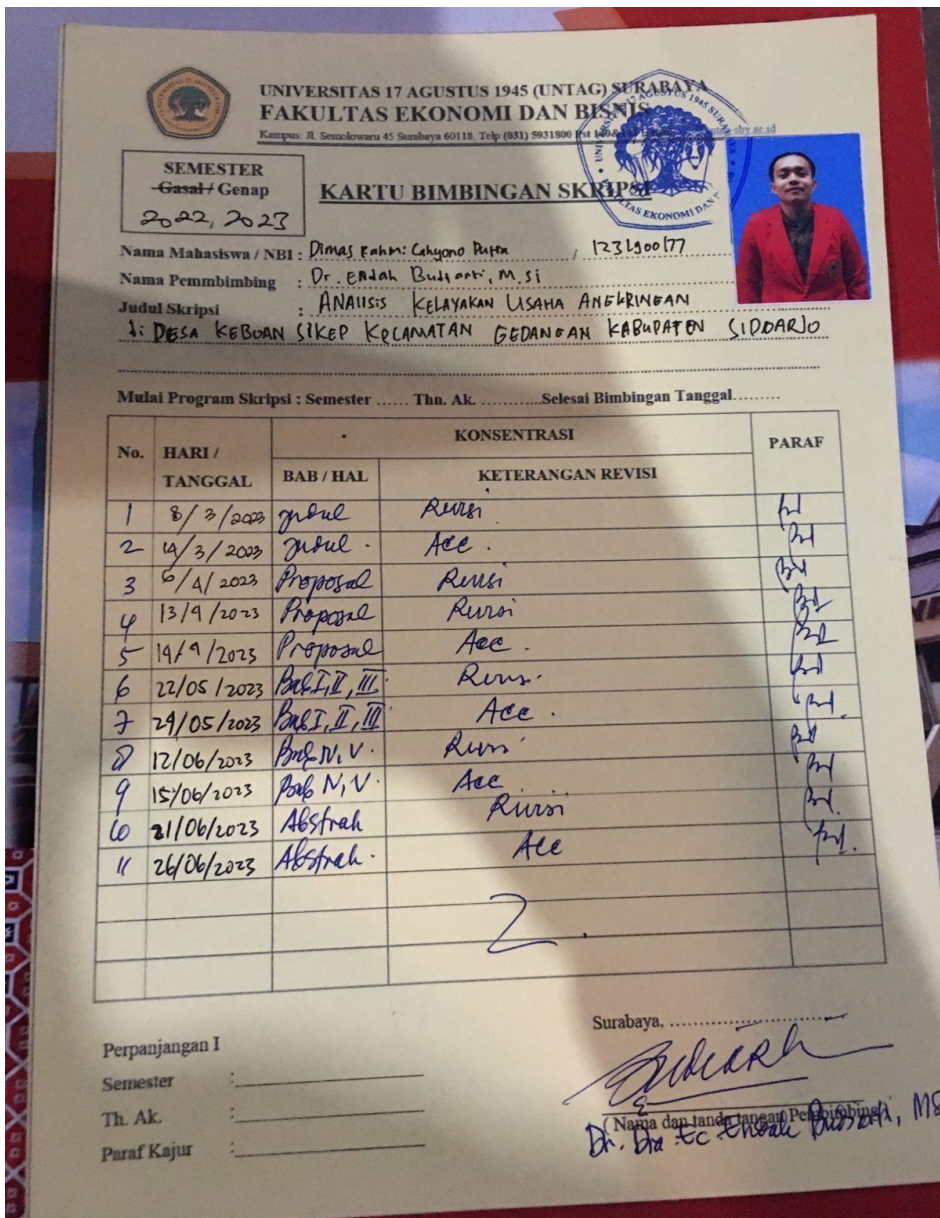 UNIVERSITAS 17 AGUSTUS 1945 (UNTAG) SURABAYA
FAKULTAS EKONOMI DAN BISNIS
Kampus: Jl. Semolowaru 45 Surabaya 60118. Telp (031) 5931800
SEMESTER
Gasal / Genap
2022, 2023
KARTU BIMBINGAN SKRIPSI
Nama Mahasiswa / NBI : Dimas Fahmi Cahyono Putra / 1231900177
Nama Pemmbimbing : Dr. Endah Budiarti, M.si
Judul Skripsi : ANALISIS KELAYAKAN USAHA ANEKRINGAN
di DESA KEBOAN SIKEP KECAMATAN GEDANGAN KABUPATEN SIDOARJO
Mulai Program Skripsi : Semester ...... Thn. Ak. ...........Selesai Bimbingan Tanggal.........
No. HARI / TANGGAL KONSENTRASI PARAF
BAB / HAL KETERANGAN REVISI
1 8/3/2023 Judul Revisi
2 14/3/2023 Judul . Acc .
3 6/4/2023 Proposal Revisi
4 13/4/2023 Proposal Revisi
5 14/4/2023 Proposal Acc .
6 22/05/2023 Bab I, II, III Revisi
7 29/05/2023 Bab I, II, III Acc .
8 12/06/2023 Bab IV, V . Revisi
9 15/06/2023 Bab IV, V . Acc
10 21/06/2023 Abstrak Revisi
11 26/06/2023 Abstrak . Acc
Perpanjangan I
Semester :
Th. Ak. :
Paraf Kajur :
Surabaya, ....................
( Nama dan tanda tangan Pembimbing)
Dr. Dra Ec Endah Budiarti, MS